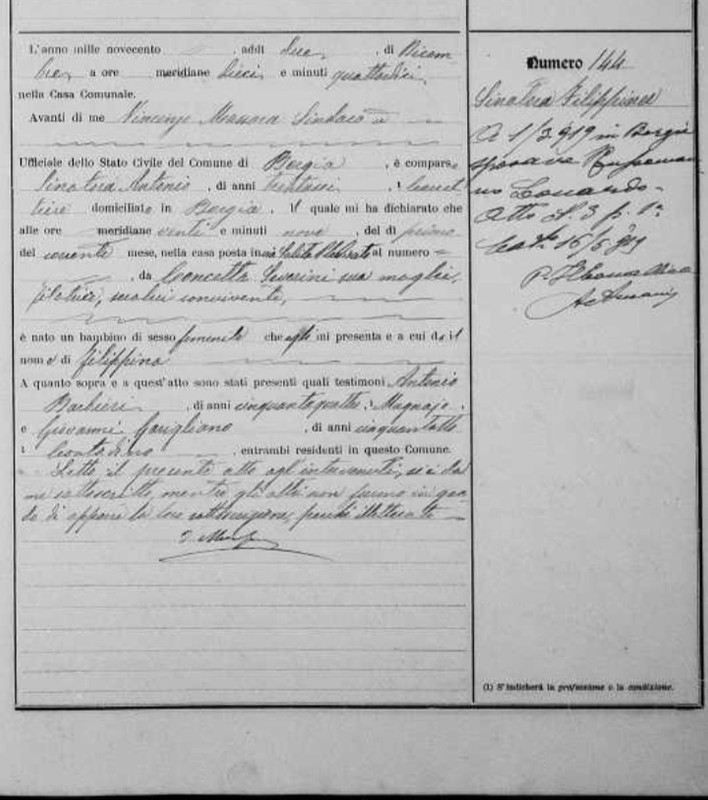 L'anno mille novecento , addì due , di Dicem
bre, a ore meridiane dieci, e minuti quattordici,
nella Casa Comunale.
Avanti di me Vincenzo Massara Sindaco
Ufficiale dello Stato Civile del Comune di Borgia , è comparso
Sinatora Antonio , di anni trentasei ,
domiciliato in Borgia , il quale mi ha dichiarato che
alle ore meridiane venti e minuti nove , del dì primo
del corrente mese, nella casa posta in al numero
, da Concetta Severini sua moglie,
filatrice, seco lui convivente,
è nato un bambino di sesso femminile che egli mi presenta e a cui dà il
nome di Filippina
A quanto sopra e a quest'atto sono stati presenti quali testimoni Antonio
Barbieri , di anni cinquantaquattro, Magnajo,
e Giovanni Garigliano , di anni cinquantotto
Contadino , entrambi residenti in questo Comune.
Letto il presente atto agl'intervenuti, si è da
me sottoscritto, mentre gli altri non furono in gra
do di apporre la loro sottoscrizione, perché illetterati
Numero 144
Sinatora Filippina
A 1/2 919 in Borgia
sposava
no Leonardo
Atto N. 3 p. 1ª
(1) S'indicherà la professione o la condizione.